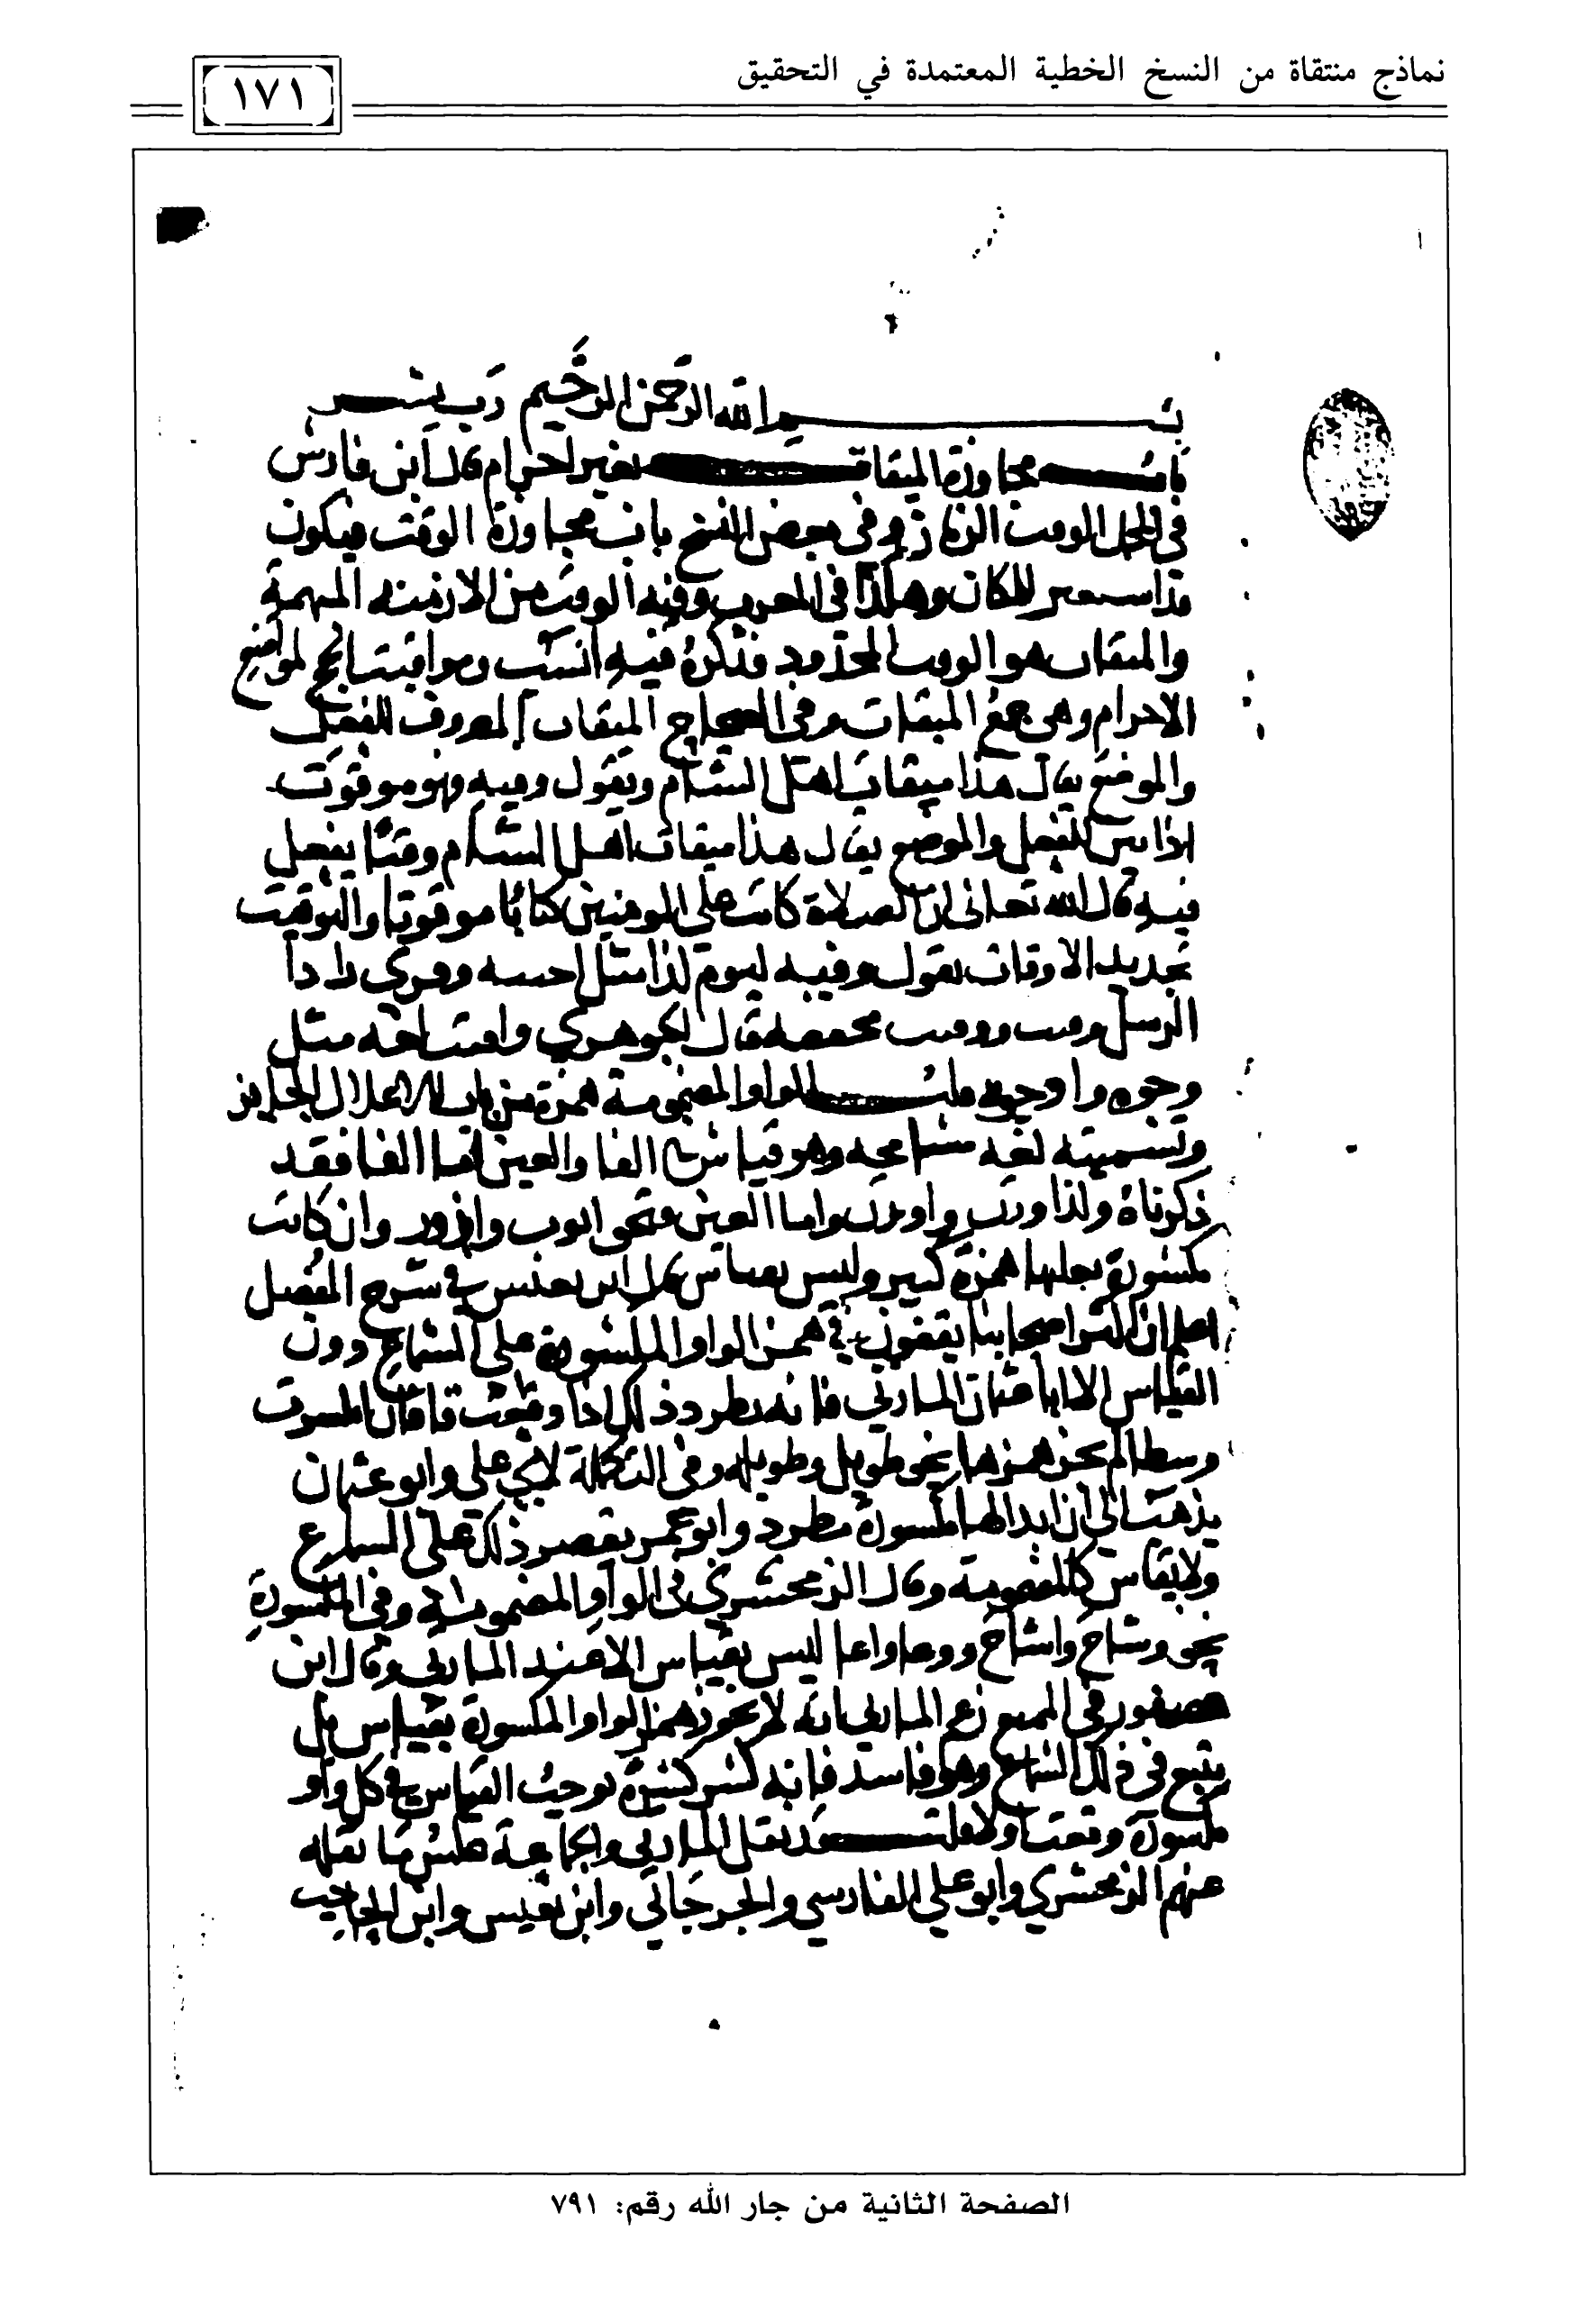 نماذج منتقاة من النسخ الخطية المعتمدة في التحقيق
١٧١
بسم الله الرحمن الرحيم رب يسر
باب مجاوزة الميقات بغير احرام قال ابن فارس
في المجمل الوقت الزمان وفي بعض النسخ باب مجاوزة الوقت فيكون
للمكان وهكذا في المغرب وفيه الوقت من الازمنة المبهمة
والميقات هو الوقت المحدود فذكره فيه انسب ومواقيت الحج لمواضع
الاحرام وهي جمع الميقات وفي الصحاح الميقات المعروف للفعل
والموضع يقال هذا ميقات اهل الشام ويقول وقته فهو موقوت
اذا بين للفعل والموضع يقال هذا ميقات اهل الشام وقتا يفعل
فيه قال الله تعالى ان الصلاة كانت على المومنين كتابا موقوتا والتوقيت
تحديد الاوقات يقول وقته ليوم كذا مثل اجله وقري واذا
الرسل وقتت ووقتت مخففة قال الجوهري واقتت لغة مثل
وجوه واوجوه قلت الواو المضمومة همزة من باب الاعلال الجايز
وتسميته لغة مسامحة وهو قياس في الفا والعين اما الفا فقد
ذكرناه ولذا ورب واورب واما العين فنحو اثوب وادور وان كانت
مكسورة فجعلها همزة كثير وليس بقياس قال ابن يعيش في شرح المفصل
اعلم ان اكثر اصحابنا يقفون في همز الواو المكسورة على السماع دون
القياس الا ابا عثمان المازني فانه يطرد ذلك اذا وقعت فا فان انكسرت
وسطا لم يجز همزها نحو طويل وطويلة وفي التكملة لابي علي وابو عثمان
يذهب الى ان ابدالها مكسورة مطرد وابو عمر يقصر ذلك على السماع
ولا يقاس كالمضمومة وقال الزمخشري في الواو المضمومة وفي المكسورة
نحو وشاح واشاح ووعا واعا ليس بقياس الا عند المازني وقال ابن
عصفور في الممتع زعم المازني انه لا يجوز همز الواو المكسورة بقياس بل
يتبع في ذلك السماع وهو فاسد فانه كثر كثرة توجب القياس في كل واو
مكسورة وقعت اولا قلت نقل المازني والجماعة عكس ما نقله
عنهم الزمخشري وابو علي الفارسي والجرجاني وابن يعيش وابن الحاجب
الصفحة الثانية من جار الله رقم: ٧٩١